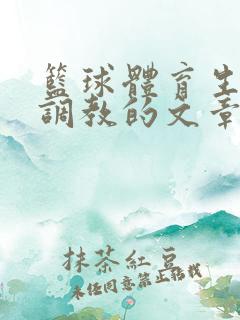 籃球體育生
調教的文章
抹茶紅豆
未經同意禁止轉載